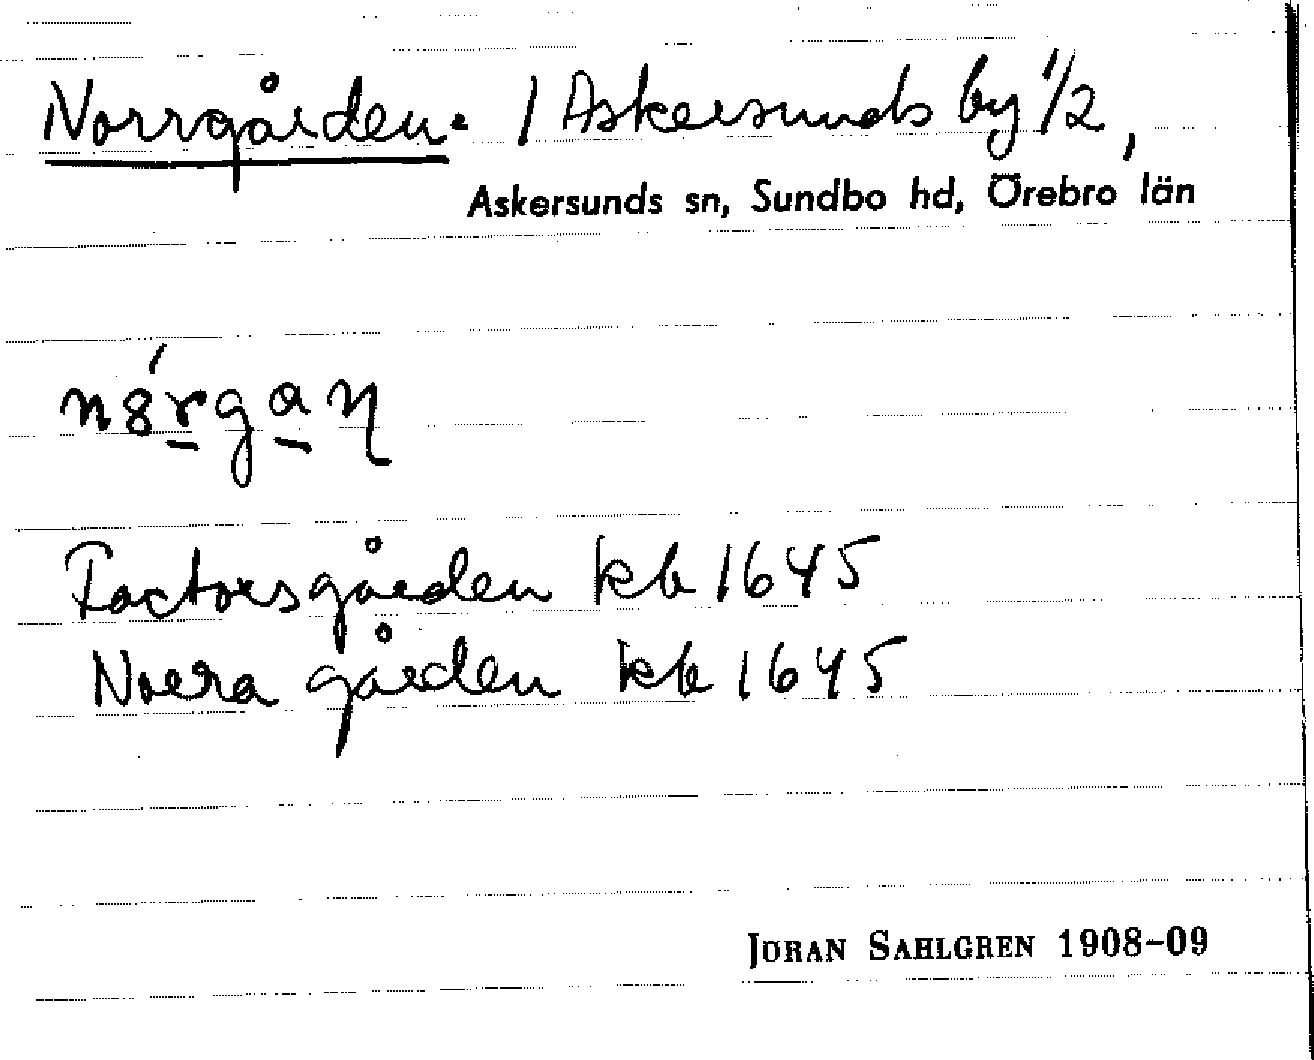 Norrgården. / Askersunds by 1/2,
Askersunds sn, Sundbo hd, Örebro län
n8́r̲ga̲ɳ
Factorsgården kb 1645
Norra gården kb 1645
JÖRAN SAHLGREN 1908–09